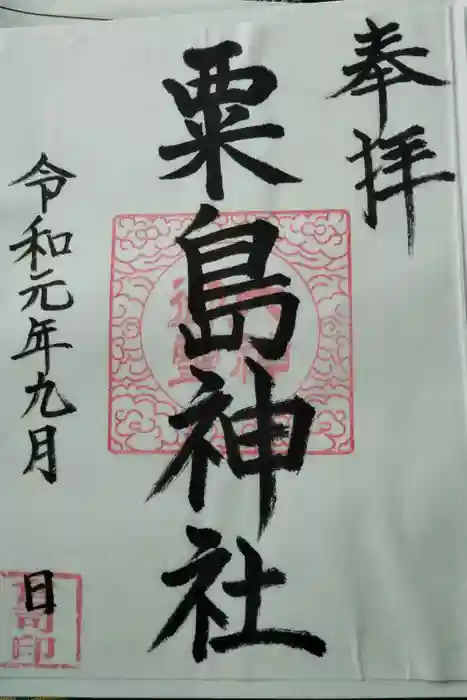 奉拝
粟島神社
令和元年九月 日